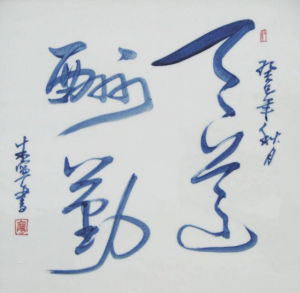 癸巳年秋月
天道
酬勤
書